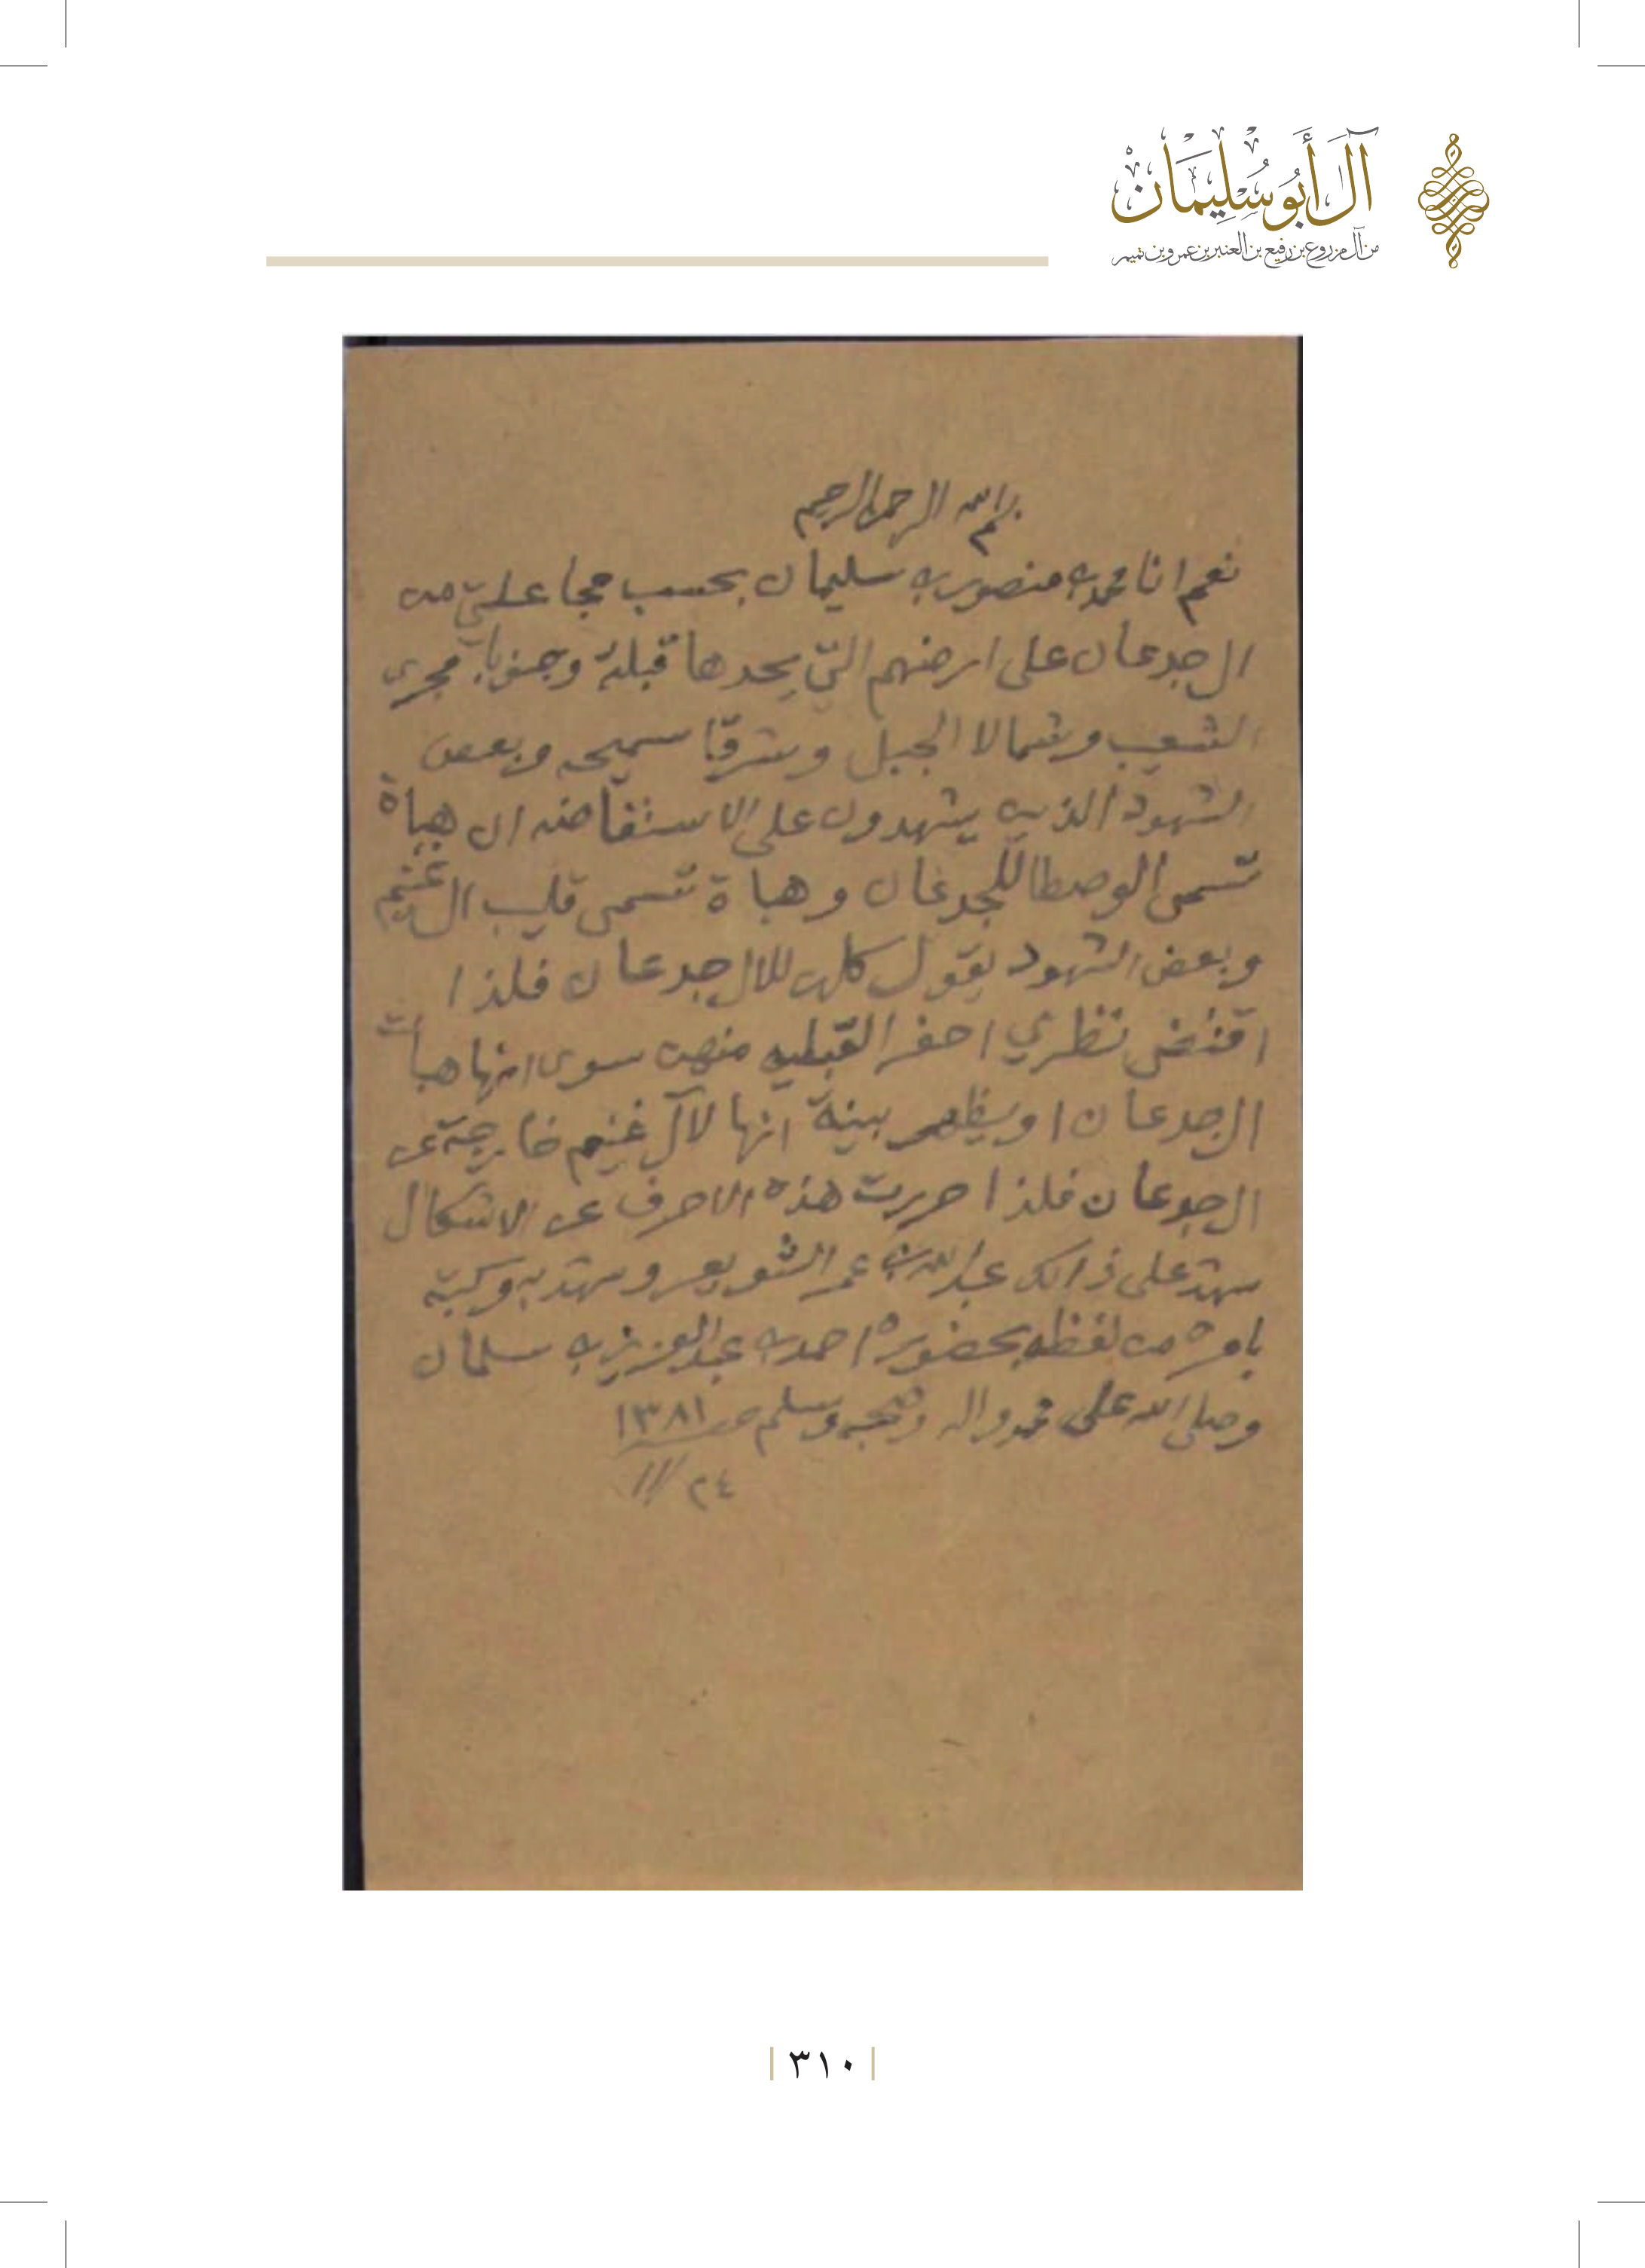 آل أبو سليمان
من آل مزروع بن رفيع بن العنبر بن عمرو بن تميم
بسم الله الرحمن الرحيم
نعم انا محمد بن منصور بن سليمان بحسب علي من
ال جدعان على ارضهم التي يحدها قبلة وجنوبا مجرى
الشعيب وشمالا الجبل وشرقا سميحه وبعض
الشهود الذين يشهدون على الاستفاضه ان هباة
تسمى الوصطا للجدعان وهباة تسمى قليب ال غنيم
وبعض الشهود يقول كلهن للال جدعان فلذا
اقتضى نظري احفر القبليه منهن سوى انها هبات
ال جدعان او يظهر بينة انها لآل غنيم خارجة عن
ال جدعان فلذا حررت هذه الاحرف عن الاشكال
شهد على ذالك عبدالله بن عمر الشويعر وشهد به وكتبه
بامره من لفظه بحضوره احمد بن عبدالعزيز بن سلمان
وصلى الله على محمد واله وصحبه وسلم ١٣٨١
٢٤ / ١١
٣١٠